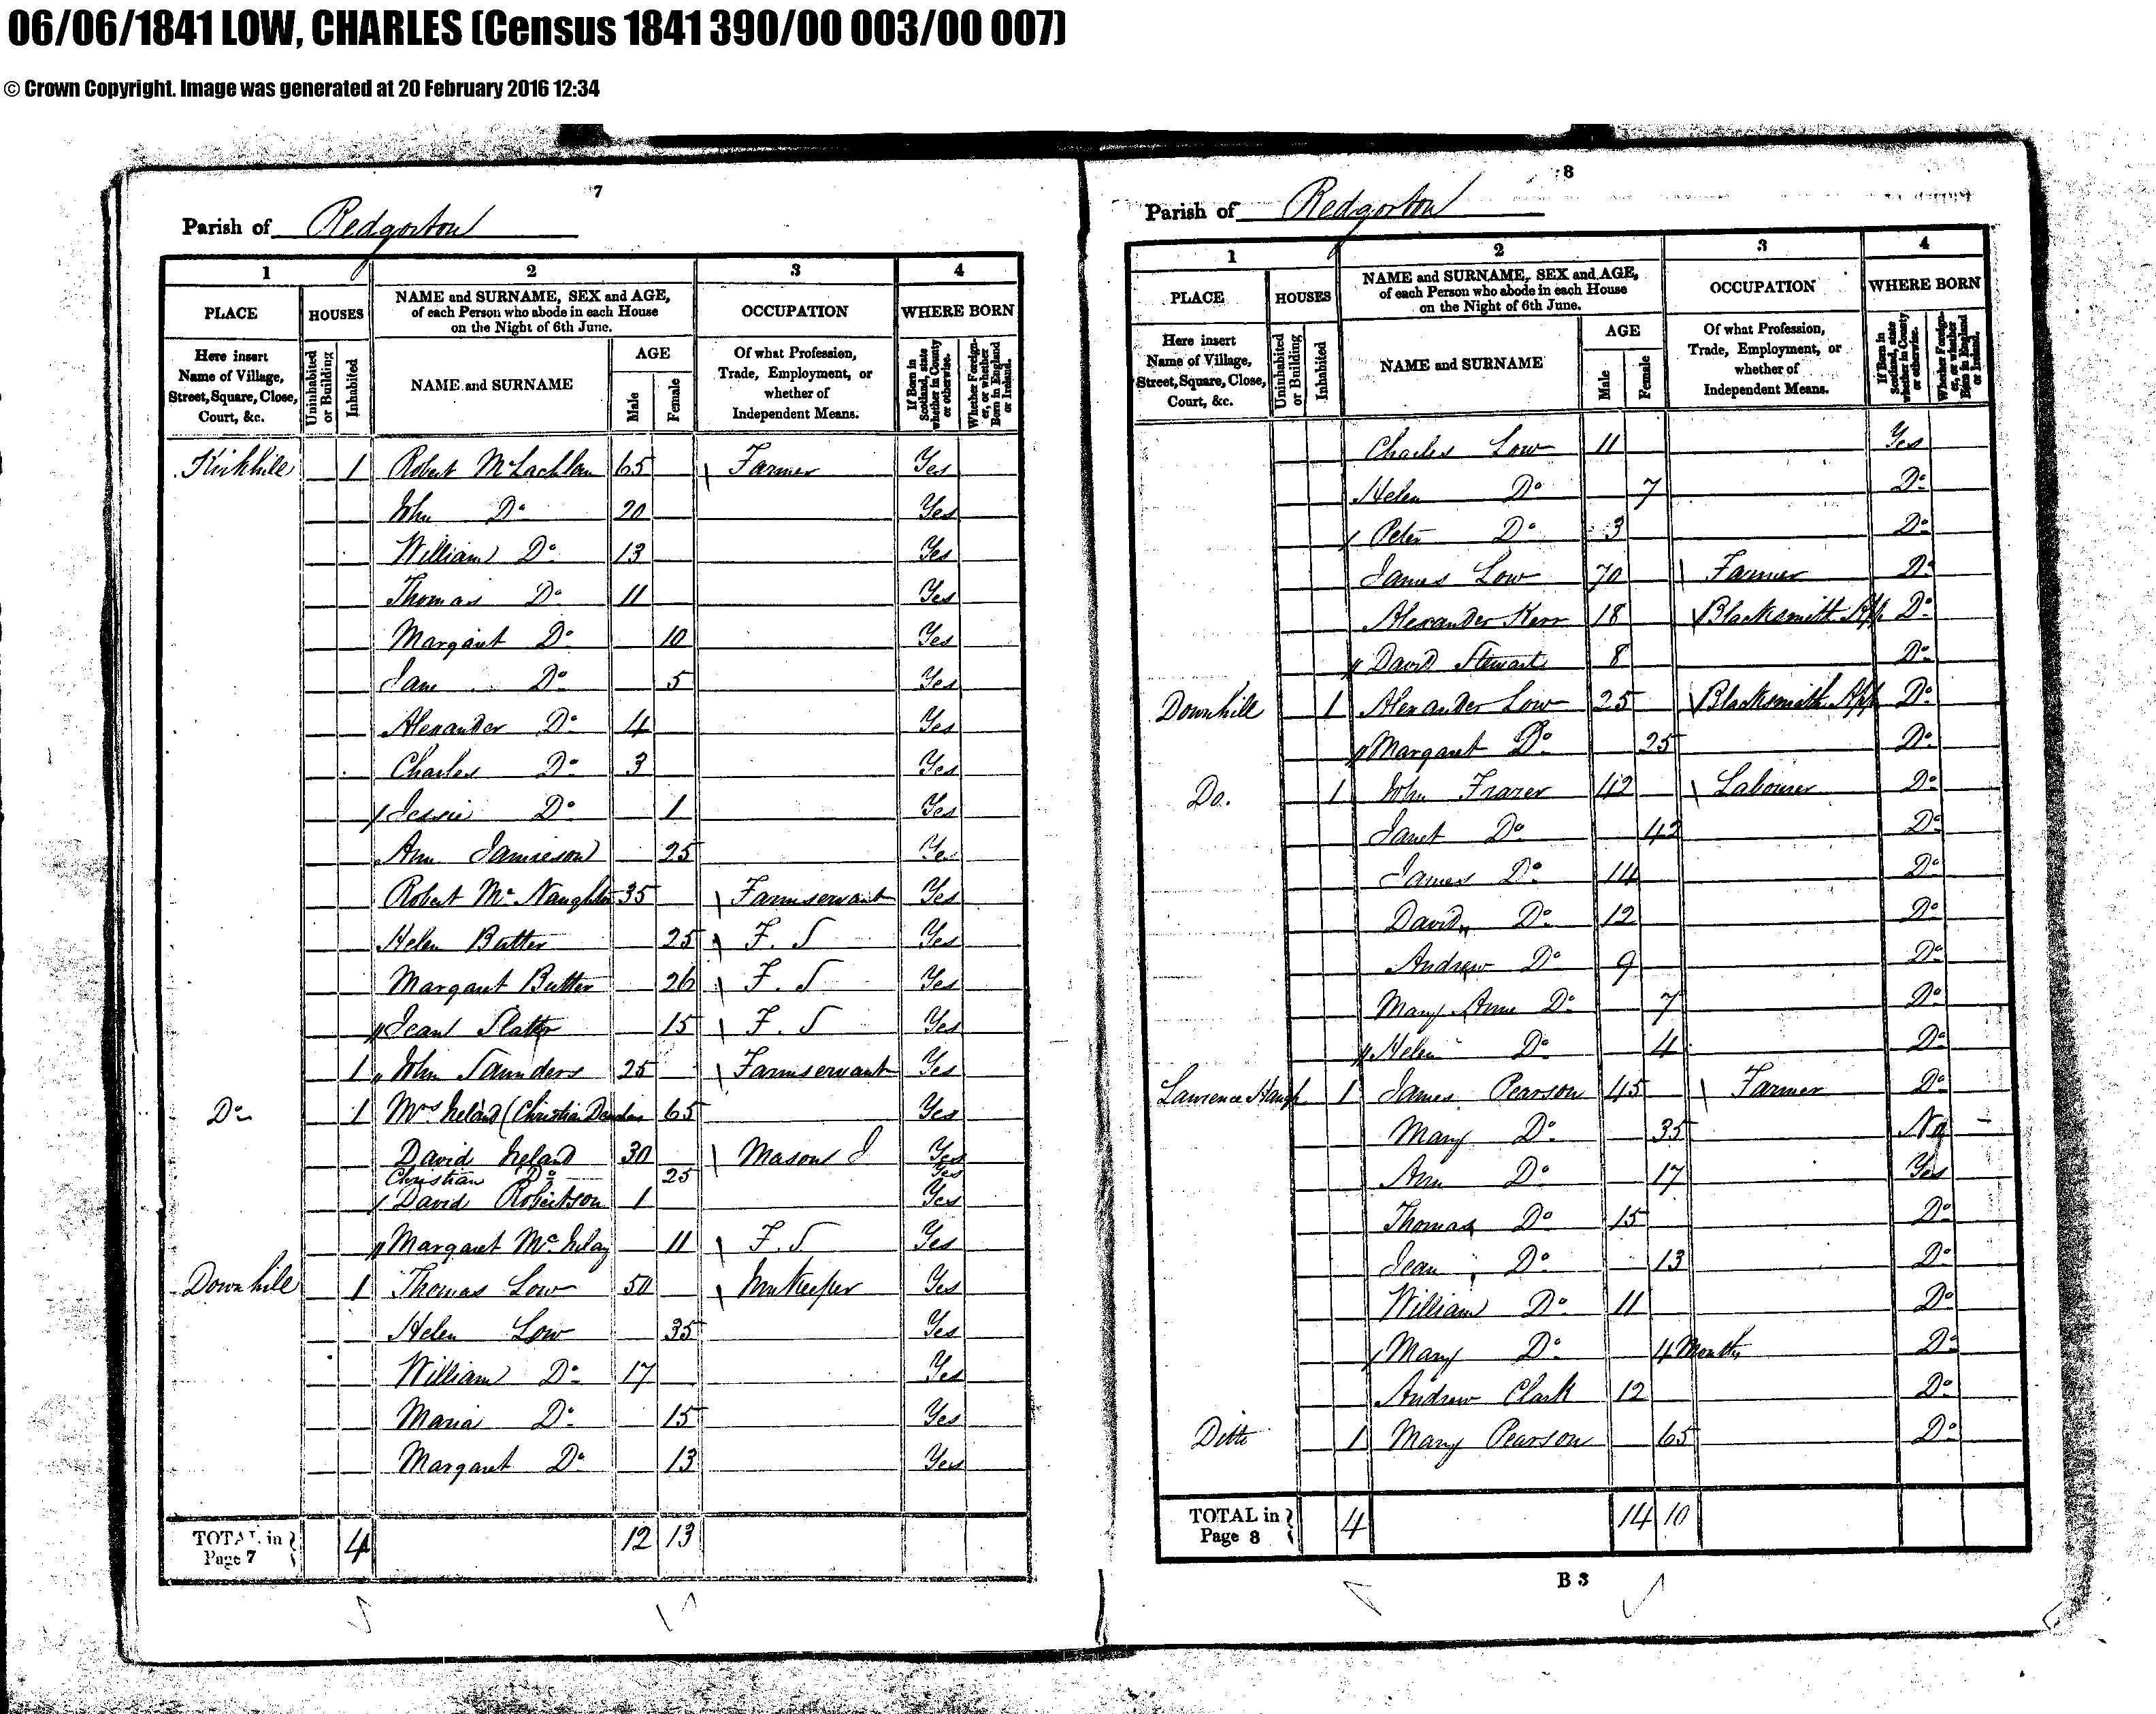 06/06/1841 LOW, CHARLES (Census 1841 390/00 003/00 007)
© Crown Copyright. Image was generated at 20 February 2016 12:34
7
Parish of Redgorton
1 2 3 4
PLACE HOUSES NAME and SURNAME, SEX and AGE, of each Person who abode in each House on the Night of 6th June. OCCUPATION WHERE BORN
Here insert Name of Village, Street, Square, Close, Court, &c. Uninhabited or Building Inhabited NAME and SURNAME AGE Male Female Of what Profession, Trade, Employment, or whether of Independent Means. If Born in Scotland, state whether in County or otherwise. Whether Foreigner, or whether Born in England or Ireland.
Kirkhill 1 Robert McLachlan 65 Farmer Yes
John Do 20 Yes
William Do 13 Yes
Thomas Do 11 Yes
Margaret Do 10 Yes
Jane Do 5 Yes
Alexander Do 4 Yes
Charles Do 3 Yes
Jessie Do 1 Yes
Ann Jamieson 25 Yes
Robert McNaughton 35 Farmservant Yes
Helen Butter 25 F. S Yes
Margaret Butter 26 F. S Yes
Jean 15 F. S Yes
1 John Saunders 25 Farmservant Yes
Do 1 Mrs Ireland (Christian 65 Yes
David Ireland 30 Mason J Yes
Christian Do 25 Yes
David Robertson 1 Yes
Margaret 11 F. S Yes
Downhill 1 Thomas Low 50 Innkeeper Yes
Helen Low 35 Yes
William Do 17 Yes
Maria Do 15 Yes
Margaret Do 13 Yes
TOTAL in Page 7 4 12 13
8
Parish of Redgorton
1 2 3 4
PLACE HOUSES NAME and SURNAME, SEX and AGE, of each Person who abode in each House on the Night of 6th June. OCCUPATION WHERE BORN
Here insert Name of Village, Street, Square, Close, Court, &c. Uninhabited or Building Inhabited NAME and SURNAME AGE Male Female Of what Profession, Trade, Employment, or whether of Independent Means. If Born in Scotland, state whether in County or otherwise. Whether Foreigner, or whether Born in England or Ireland.
Charles Low 11 Yes
Helen Do 7 Do
Peter Do 3 Do
James Low 70 Farmer Do
Alexander Kerr 18 Blacksmith App Do
David Stewart 8 Do
Downhill 1 Alexander Low 25 Blacksmith App Do
Margaret Do 25 Do
Do. 1 John Frazer 42 Labourer Do
Janet Do 42 Do
James Do 14 Do
David Do 12 Do
Andrew Do 9 Do
Mary Anne Do 7 Do
Helen Do 4 Do
Lawrence Haugh 1 James Pearson 45 Farmer Do
Mary Do 35 No
Ann Do 17 Yes
Thomas Do 15 Do
Jean Do 13 Do
William Do 11 Do
Mary Do 4 Months Do
Andrew Clark 12 Do
Ditto 1 Mary Pearson 65 Do
TOTAL in Page 8 4 14 10
B 3